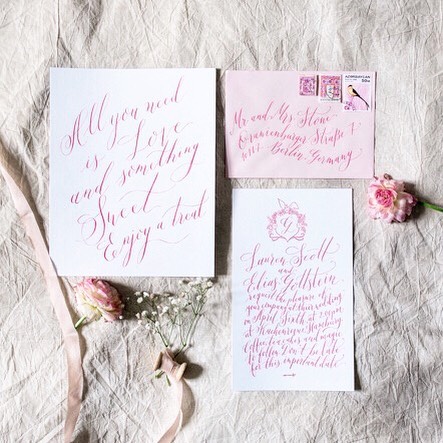 All you need
is Love
and something
Sweet
Enjoy a treat
Mr and Mrs Stone
Oranienburger Straße 7
10117 Berlin, Germany
AZERBAYCAN
Lauren Scott
and
Elias Gollstein
request the pleasure of
your company at their wedding
on April Sixth at
at Hamburg
and magic
Don't be late
for this important date